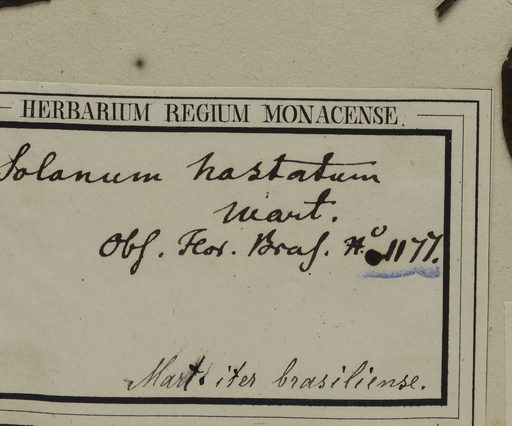 HERBARIUM REGIUM MONACENSE.
Solanum hastatum
Mart.
Obs. Flor. Bras. No. 1177.
Martii iter brasiliense.